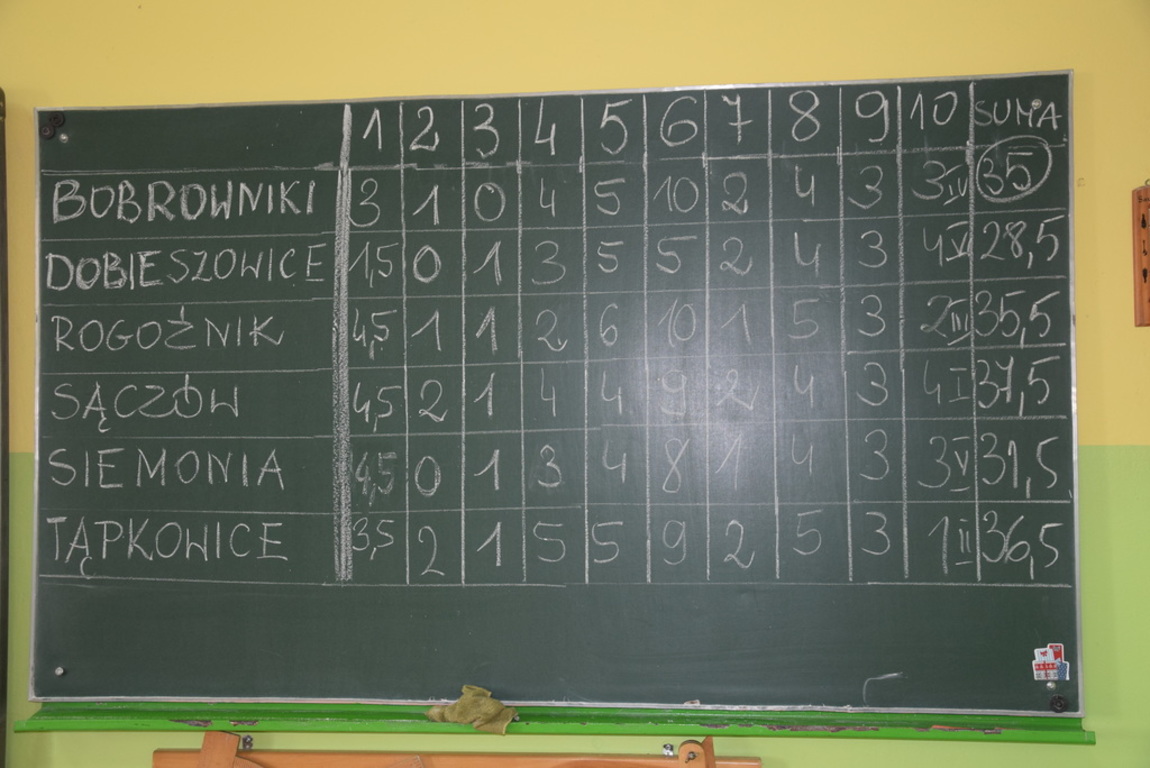 1 2 3 4 5 6 7 8 9 10 SUMA
BOBROWNIKI 3 1 0 4 5 10 2 4 3 3 IV 35
DOBIESZOWICE 1,5 0 1 3 5 5 2 4 3 4 VI 28,5
ROGOŹNIK 4,5 1 1 2 6 10 1 5 3 2 III 35,5
SĄCZÓW 4,5 2 1 4 4 9 2 4 3 4 I 37,5
SIEMONIA 4,5 0 1 3 4 8 1 4 3 3 V 31,5
TĄPKOWICE 3,5 2 1 5 5 9 2 5 3 1 II 36,5